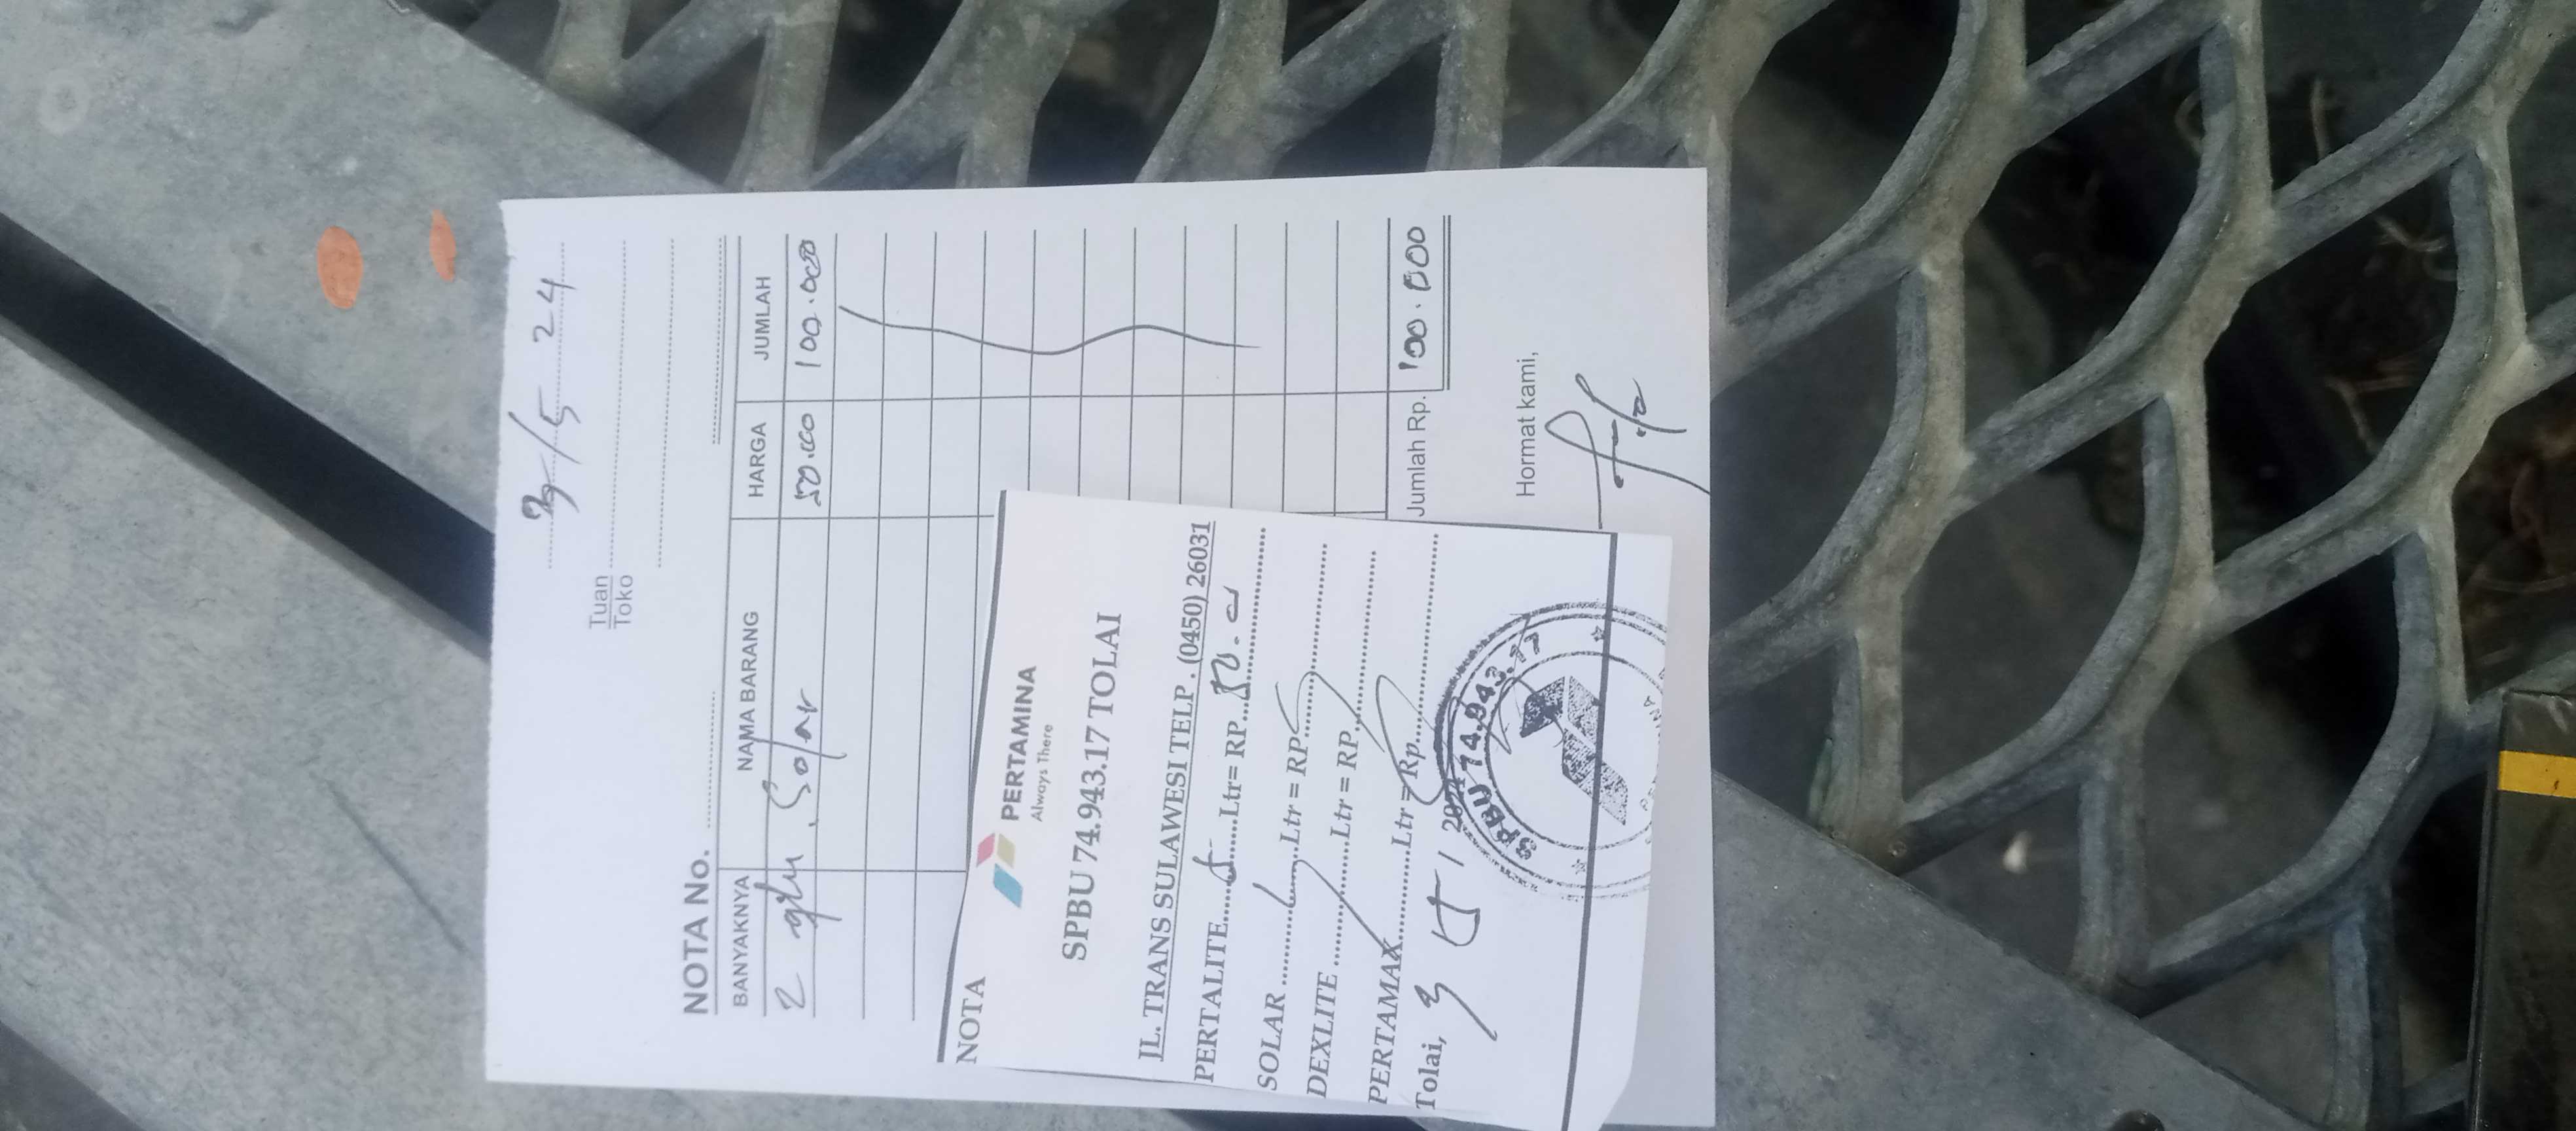 /5 24
Tuan
Toko
NOTA No.
BANYAKNYA NAMA BARANG HARGA JUMLAH
2 Solar 50.000 100.000
Jumlah Rp. 100.000
Hormat kami,
NOTA
PERTAMINA
Always There
SPBU 74.943.17 TOLAI
JL. TRANS SULAWESI TELP. (0450) 26031
PERTALITE..........Ltr= RP...50.
SOLAR ..........Ltr = RP..........
DEXLITE ..........Ltr = RP..........
PERTAMAX..........Ltr = Rp..........
Tolai, 3 5 / 2024
SPBU 74.943.17